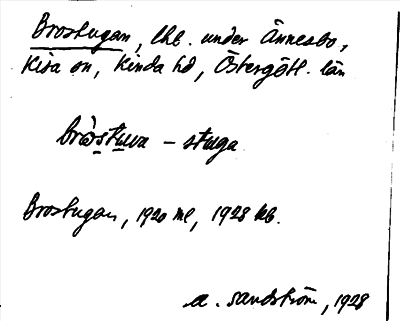 Brostugan, lht. under Ännesbo,
Kisa sn, Kinda hd, Östergötl. län
bròstuva – stuga
Brostugan, 1920 ml, 1928 kb.
A. Sandström, 1928